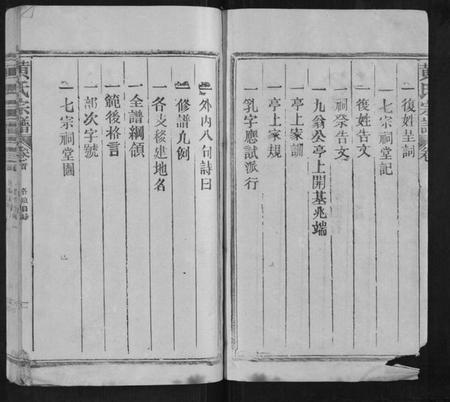 黄氏宗譜
一復姓呈詞
一七宗祠堂記
一復姓告文
祠祭告文
一九翁公亭上開基兆端
一亭上家訓
一亭上家規
一乳字應試派行
一外內八句詩曰
一修譜凡例
一各支移建地名
一全譜綱領
一範後格言
一部次字號
一七宗祠堂圖
黄氏宗譜 卷首